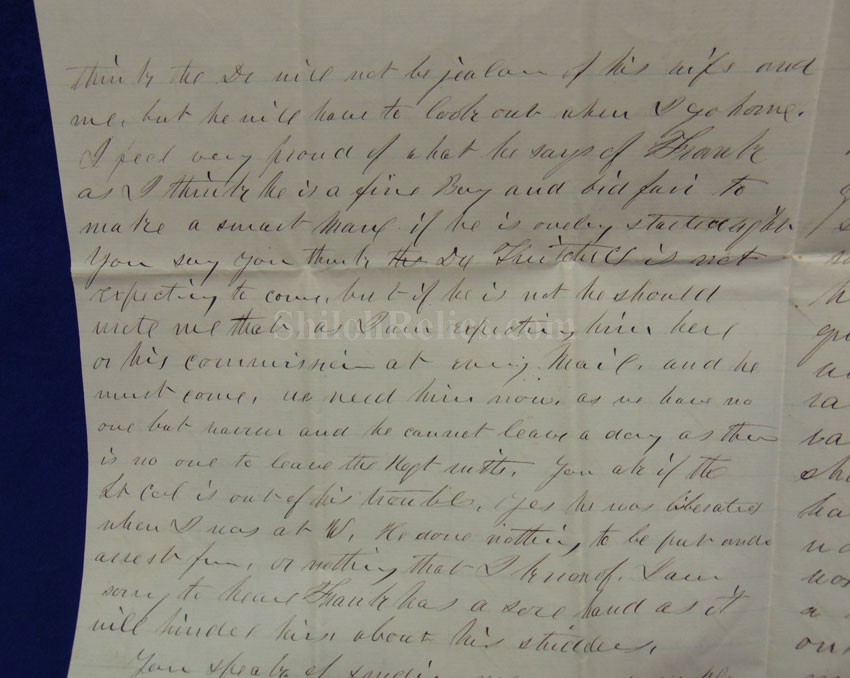 think the Dr will not be jealous of his wife and
me, but he will have to look out when I go home.
I feel very proud of what he says of Frank
as I think he is a fine Boy and bid fair to
make a smart Man, if he is onely started right
You say you think the Dr is not
expecting to come, but if he is not he should
write me that, as I am expecting him here
or his commission at every Mail. and he
must come, we need him now. as we have no
one but and he cannot leave a day as there
is no one to leave the Regt with. You ask if the
Lt Col is out of his trouble, yes he was liberated
when I was at W. He done nothing to be put under
arrest for, or nothing that I know of. I am
sorry to hear Frank has a sore hand as it
will hinder him about his studdies.
You speak of
ShilohRelics.com